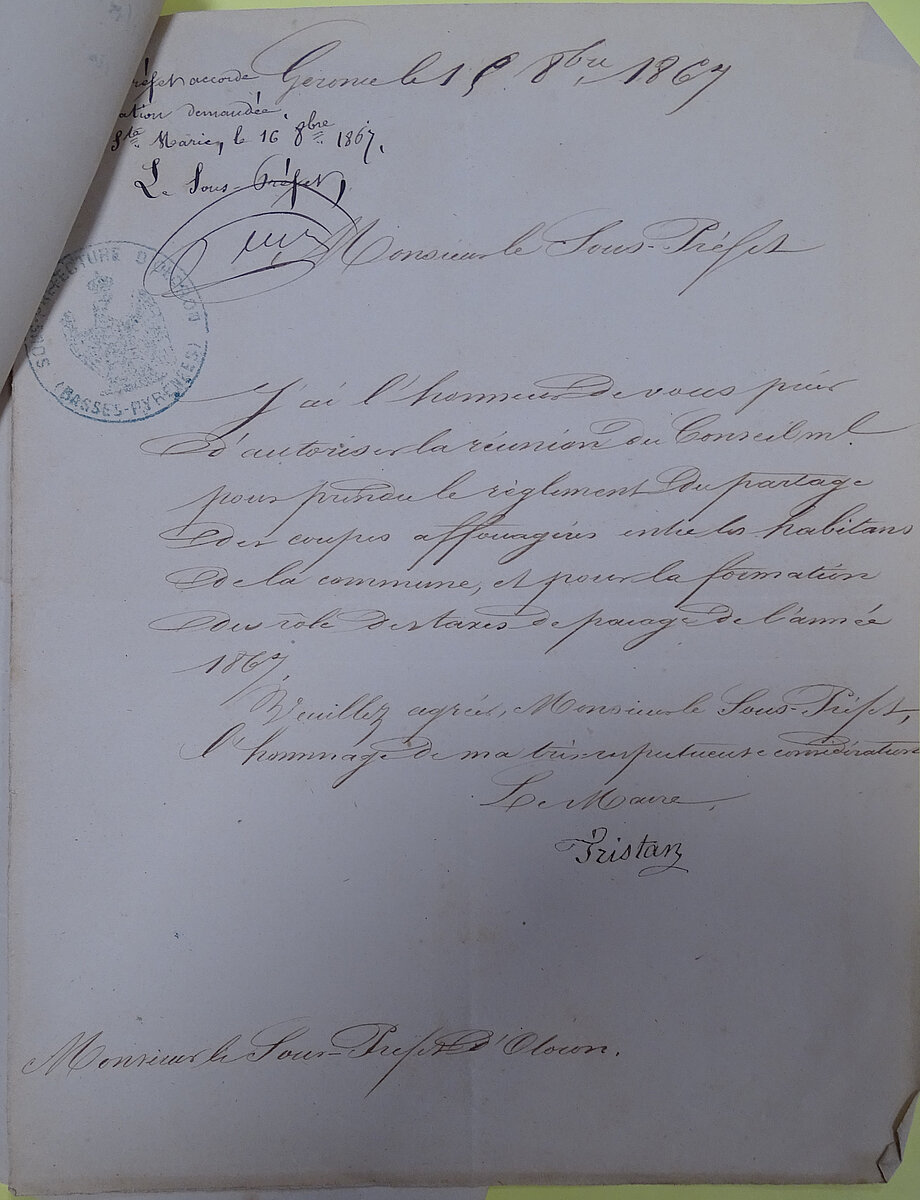 Geronce le 15 8bre 1867
réfet accorde
ation demandée.
Ste Marie, le 16 8bre 1867.
Le Sous-Préfet,
SOUS-PRÉFECTURE D'OLORON
(BASSES-PYRÉNÉES)
Monsieur le Sous-Préfet
J'ai l'honneur de vous prier
d'autoriser la réunion du Conseil ml
pour prendre le règlement du partage
des coupes affouagères entre les habitans
de la commune, et pour la formation
des rôle des taxes de pacage de l'année
1867.
Veuillez agréer, Monsieur le Sous-Préfet,
l'hommage de ma très respectueuse considération
Le Maire,
Tristan
Monsieur le Sous-Préfet d'Oloron.